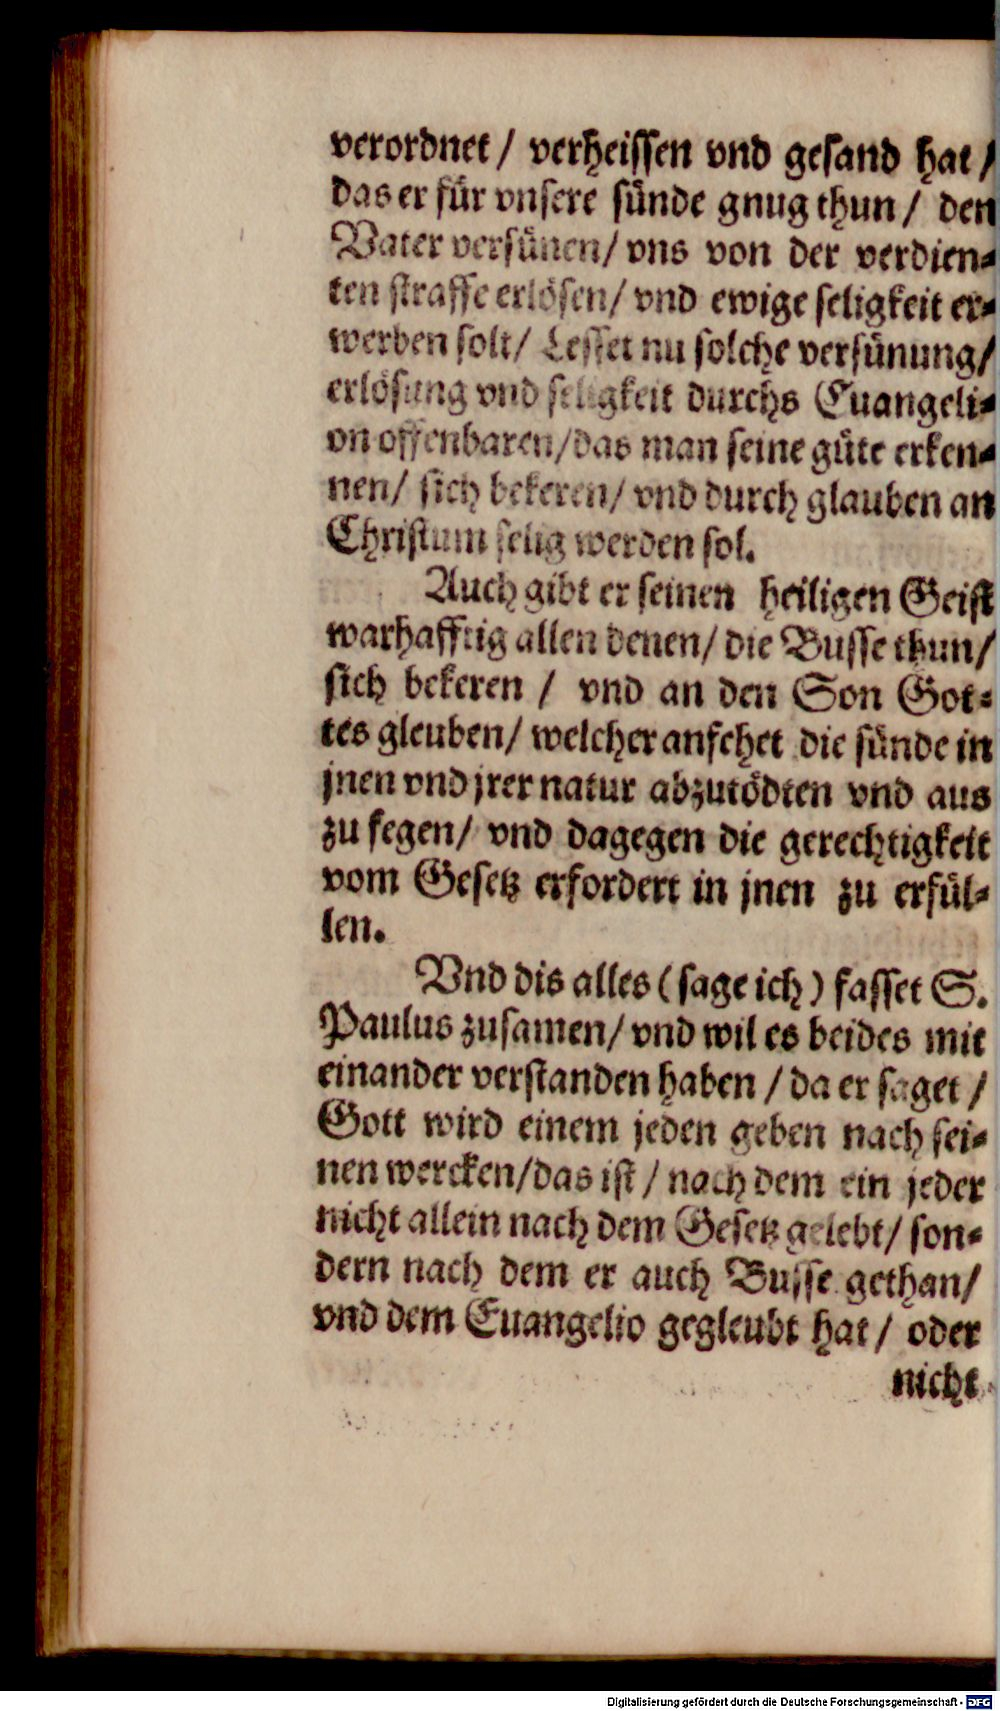 verordnet / verheissen vnd gesand hat /
das er für vnsere sünde gnug thun / den
Vater versünen / vns von der verdien-
ten straffe erlösen / vnd ewige seligkeit er-
werben solt / Lesset nu solche versünung /
erlösung vnd seligkeit durchs Euangeli-
on offenbaren / das man seine güte erken-
nen / sich bekeren / vnd durch glauben an
Christum selig werden sol.
Auch gibt er seinen heiligen Geist
warhafftig allen denen / die Busse thun /
sich bekeren / vnd an den Son Got-
tes gleuben / welcher anfehet die sünde in
jnen vnd jrer natur abzutödten vnd aus
zu fegen / vnd dagegen die gerechtigkeit
vom Gesetz erfordert in jnen zu erfül-
len.
Vnd dis alles (sage ich) fasset S.
Paulus zusamen / vnd wil es beides mit
einander verstanden haben / da er saget /
Gott wird einem jeden geben nach sei-
nen wercken / das ist / nach dem ein jeder
nicht allein nach dem Gesetz gelebt / son-
dern nach dem er auch Busse gethan /
vnd dem Euangelio gegleubt hat / oder
nicht
Digitalisierung gefördert durch die Deutsche Forschungsgemeinschaft - DFG